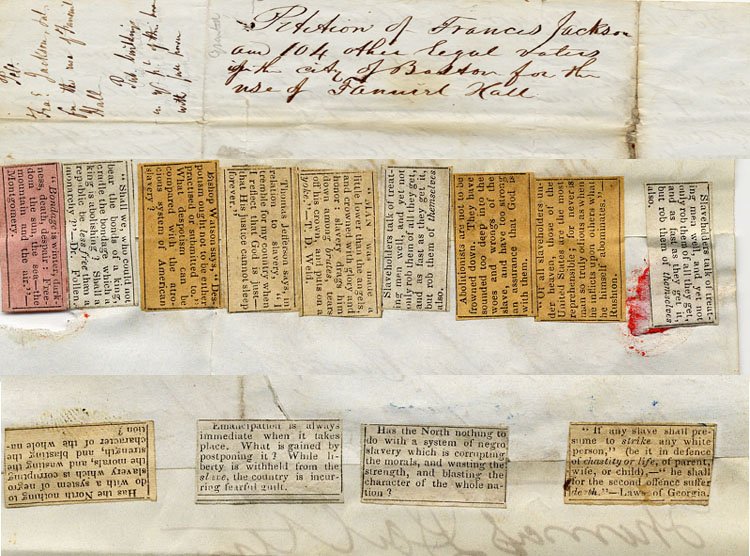 Petition of Francis Jackson
and 104 other legal voters
of the city of Boston for the
use of Fanueil Hall
Hall
"Bondage is winter, dark-
ness, death, despair. Free-
dom the sun, the sea—the
mountain and the air."—
Montgomery.
"Shall we, who could not
bear the bondage of a king,
cradle the bondage which a
king is abolishing? Shall a
republic be less free than a
monarchy?"—Dr. Follen.
Bishop Watson says, "Des-
potism ought not to be either
practised or submitted to."
What despotism can be
compared with the atro-
cious system of American
slavery?
Thomas Jefferson says, in
relation to slavery, "I
tremble for my country when
I reflect that God is just—
that His justice cannot sleep
forever."
"MAN was made a
little lower than the angels,
and crowned with glory and
honor: slavery drags him
down among brutes, tears
off his crown, and puts on a
yoke."—T. D. Weld.
Slaveholders talk of treat-
ing men well, and yet not
only rob them of all they get,
and as fast as they get it,
but rob them of themselves
also.
Abolitionists are not to be
frowned down. They have
sounded too deep into the
woes and wrongs of the
slave, and have too strong
an assurance that God is
with them.
"Of all slaveholders un-
der heaven, those of the
United States are the most
reprehensible; for never is
man so truly odious as when
he inflicts upon others what
he himself abominates."—
Rushton.
Slaveholders talk of treat-
ing men well, and yet not
only rob them of all they get,
and as fast as they get it,
but rob them of themselves
also.
Has the North nothing to
do with a system of negro
slavery which is corrupting
the morals, and wasting the
strength, and blasting the
character of the whole na-
tion?
Emancipation is always
immediate when it takes
place. What is gained by
postponing it? While li-
berty is withheld from the
slave, the country is incur-
ring fearful guilt.
Has the North nothing to
do with a system of negro
slavery which is corrupting
the morals, and wasting the
strength, and blasting the
character of the whole na-
tion?
"If any slave shall pre-
sume to strike any white
person," (be it in defence
of chastity or life, of parent,
wife, or child),—"he shall
for the second offence suffer
death."—Laws of Georgia.